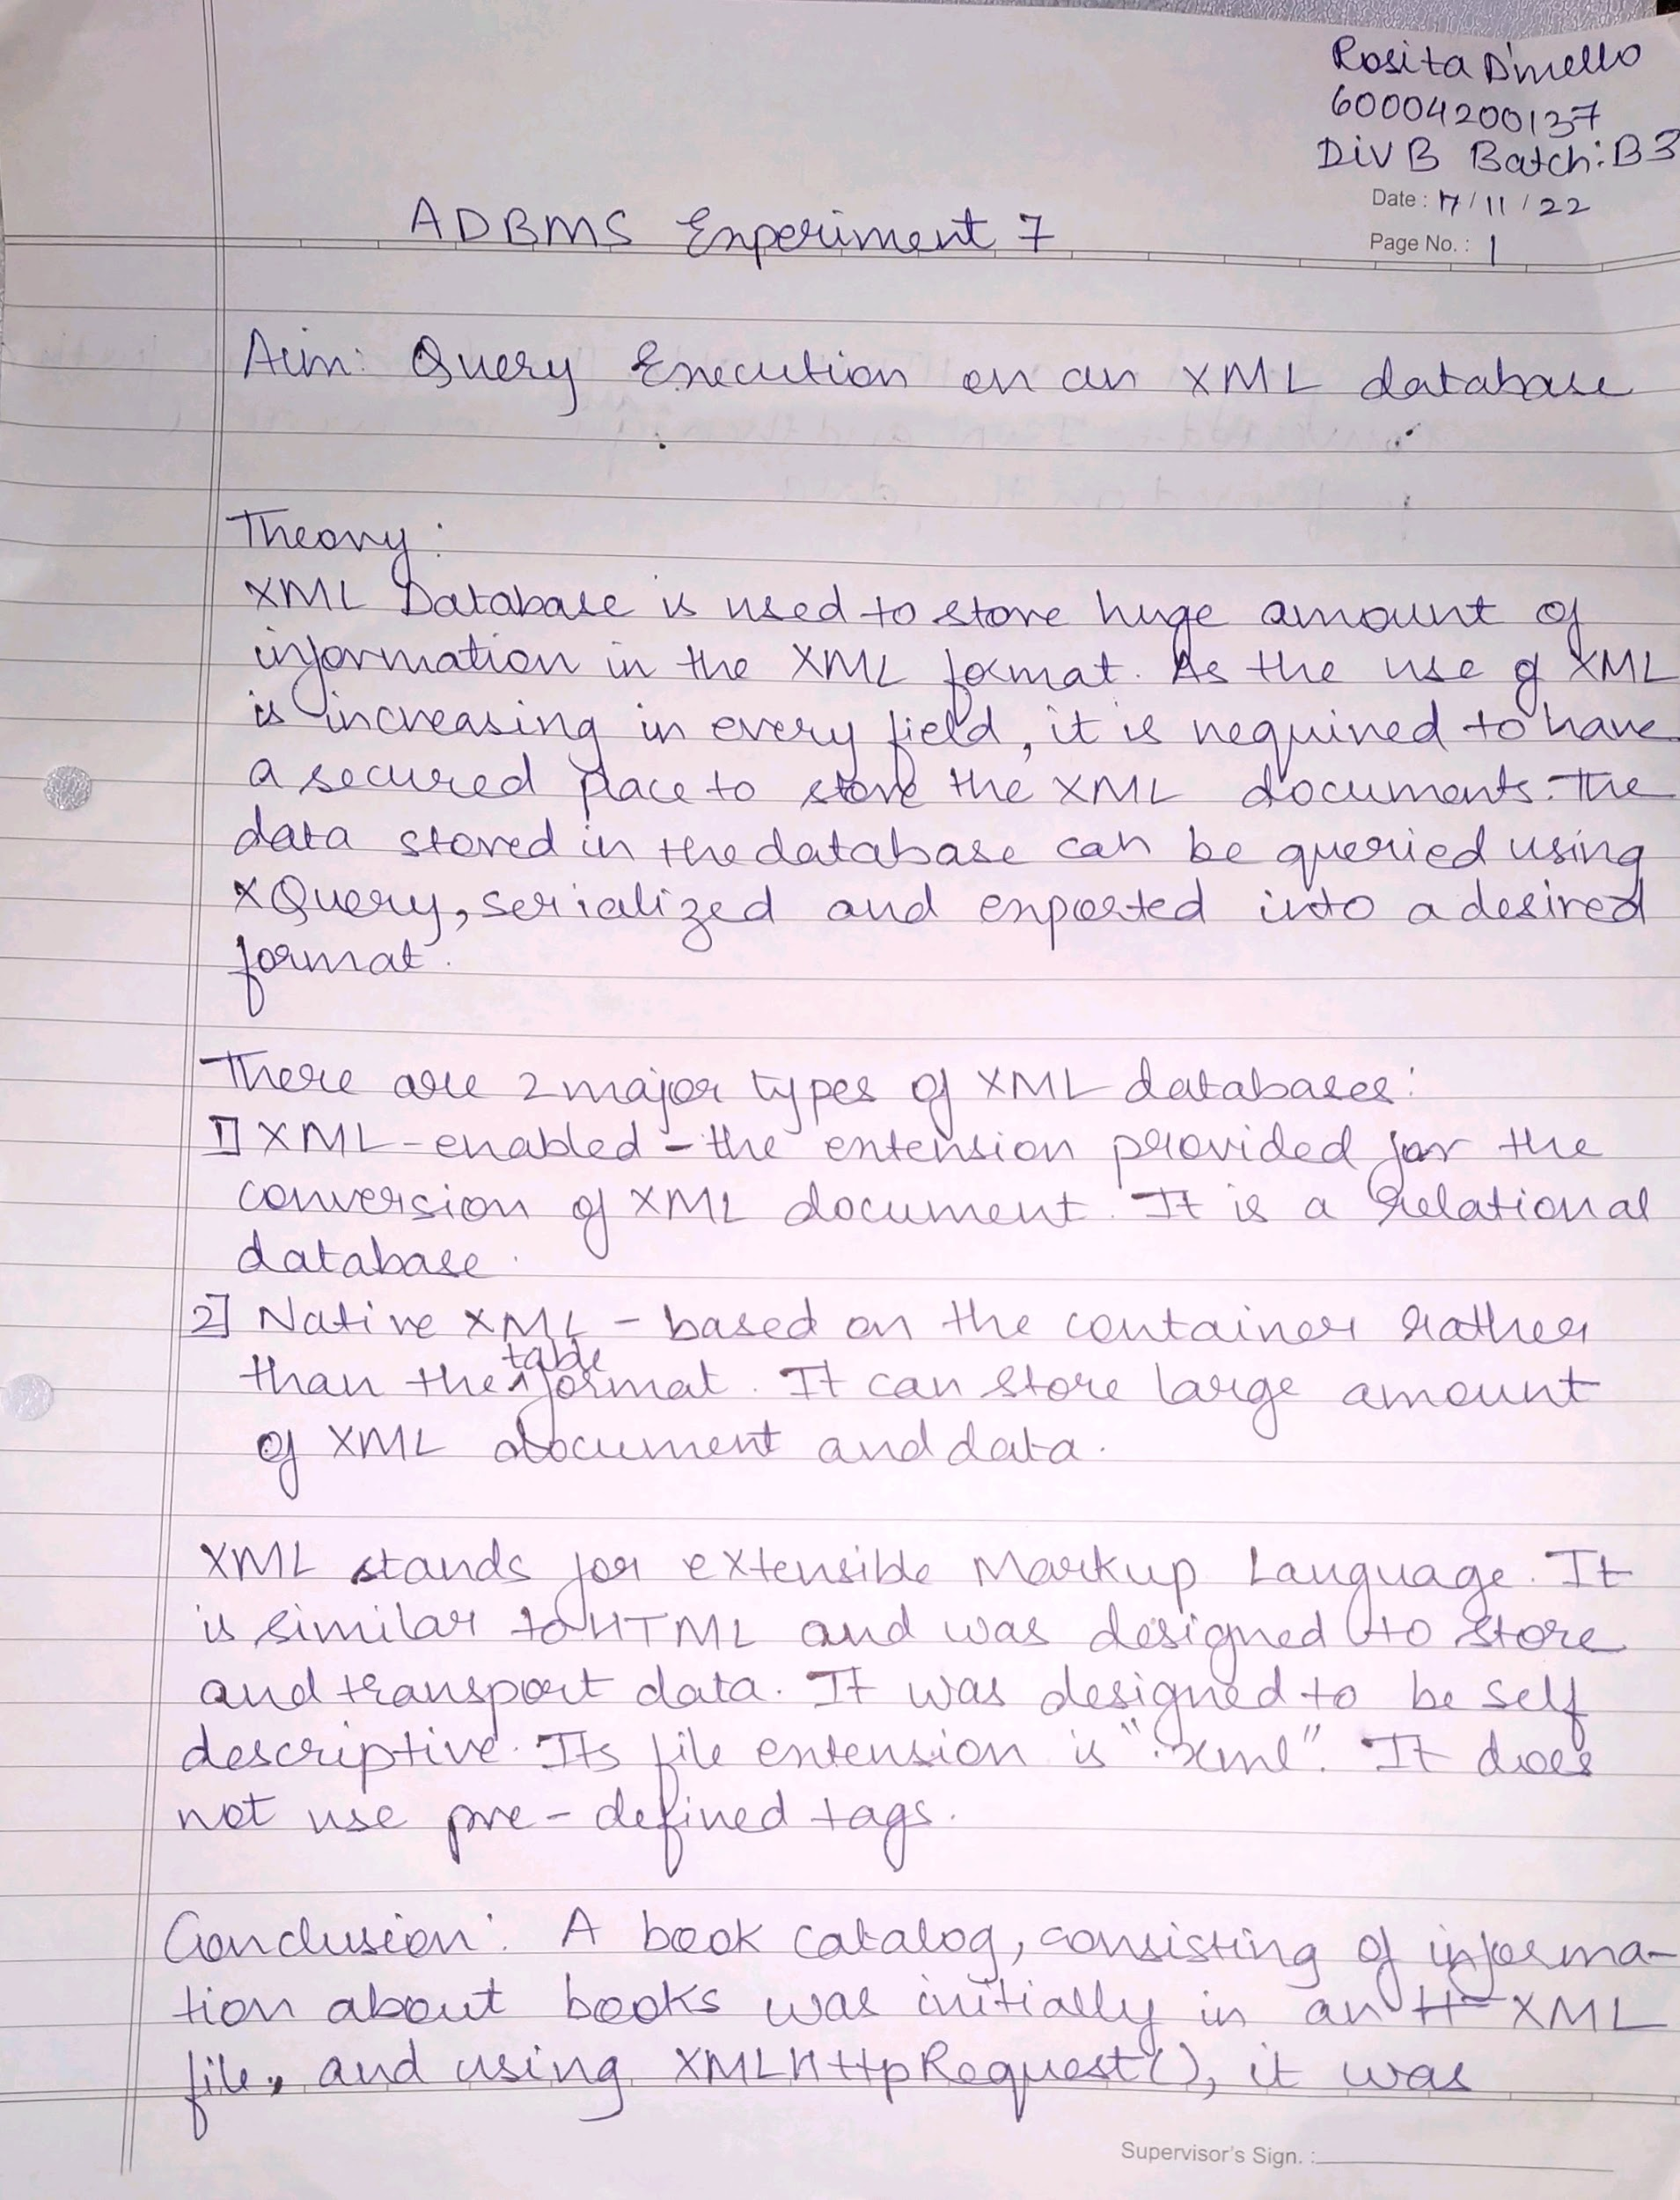 Rosita D'mello
60004200137
Div B Batch: B3
Date: 17/11/22
ADBMS Experiment 7
Page No.: 1
Aim: Query Execution on an XML database
Theory:
XML Database is used to store huge amount of
information in the XML format. As the use of XML
is increasing in every field, it is required to have
a secured place to store the XML documents. The
data stored in the database can be queried using
XQuery, serialized and exported into a desired
format.
There are 2 major types of XML databases:
1] XML-enabled - the extension provided for the
conversion of XML document. It is a relational
database.
2] Native XML - based on the container rather
than the table format. It can store large amount
of XML document and data.
XML stands for eXtensible Markup Language. It
is similar to HTML and was designed to store
and transport data. It was designed to be self
descriptive. Its file extension is ".xml". It does
not use pre-defined tags.
Conclusion: A book catalog, consisting of informa-
tion about books was initially in an XML
file, and using XMLHttpRequest(), it was
Supervisor's Sign. :